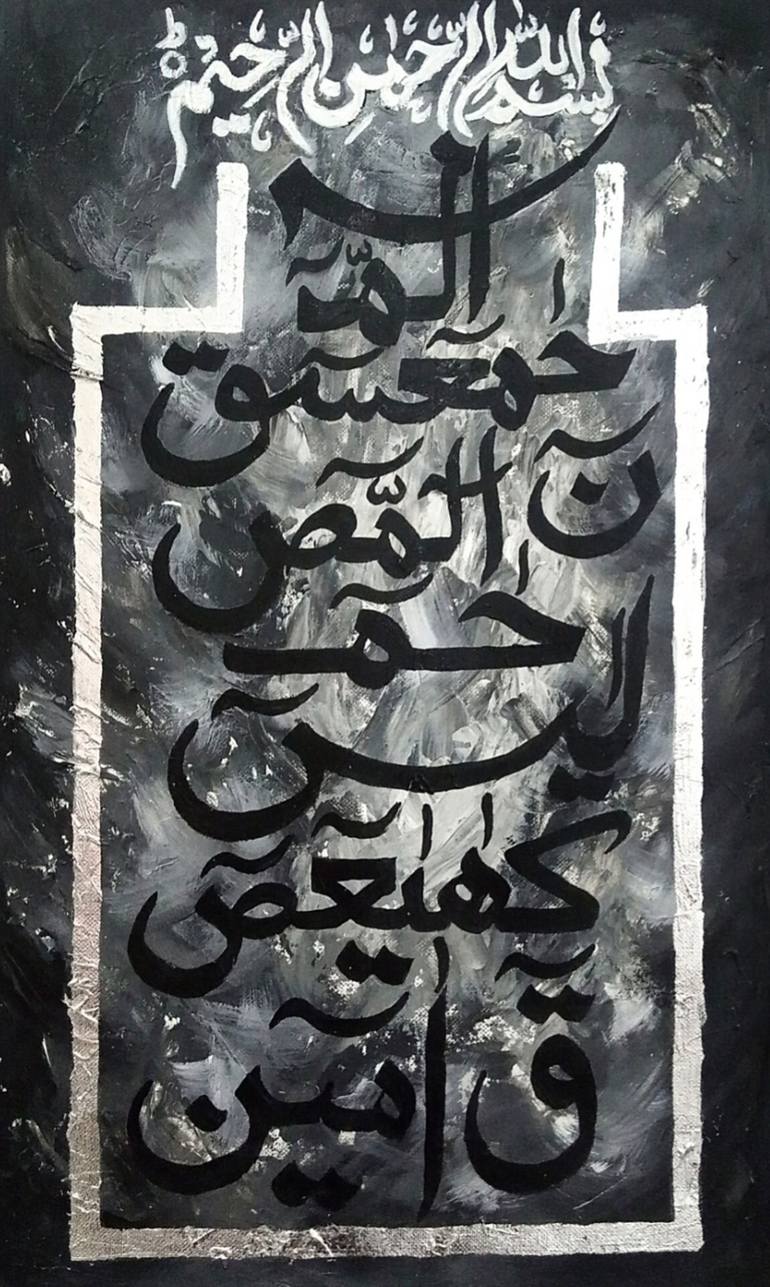 بسم الله الرحمن الرحيم
الٓمّٓ
حٰمٓعٓسٓقٓ
نٓ الٓمّٓصٓ
حٰمٓ
اليسٓ
كٓهٰيٰعٓصٓ
قٓ اٰمين